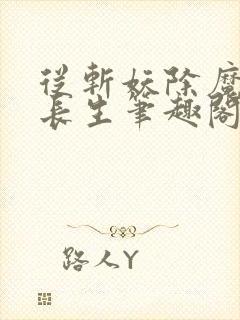 從斬妖除魔
長生筆趣閣
路人Y